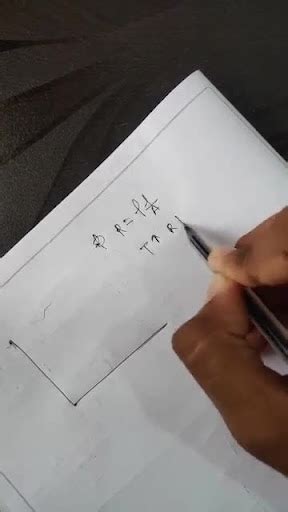 R = ρ l/A
T↑ R